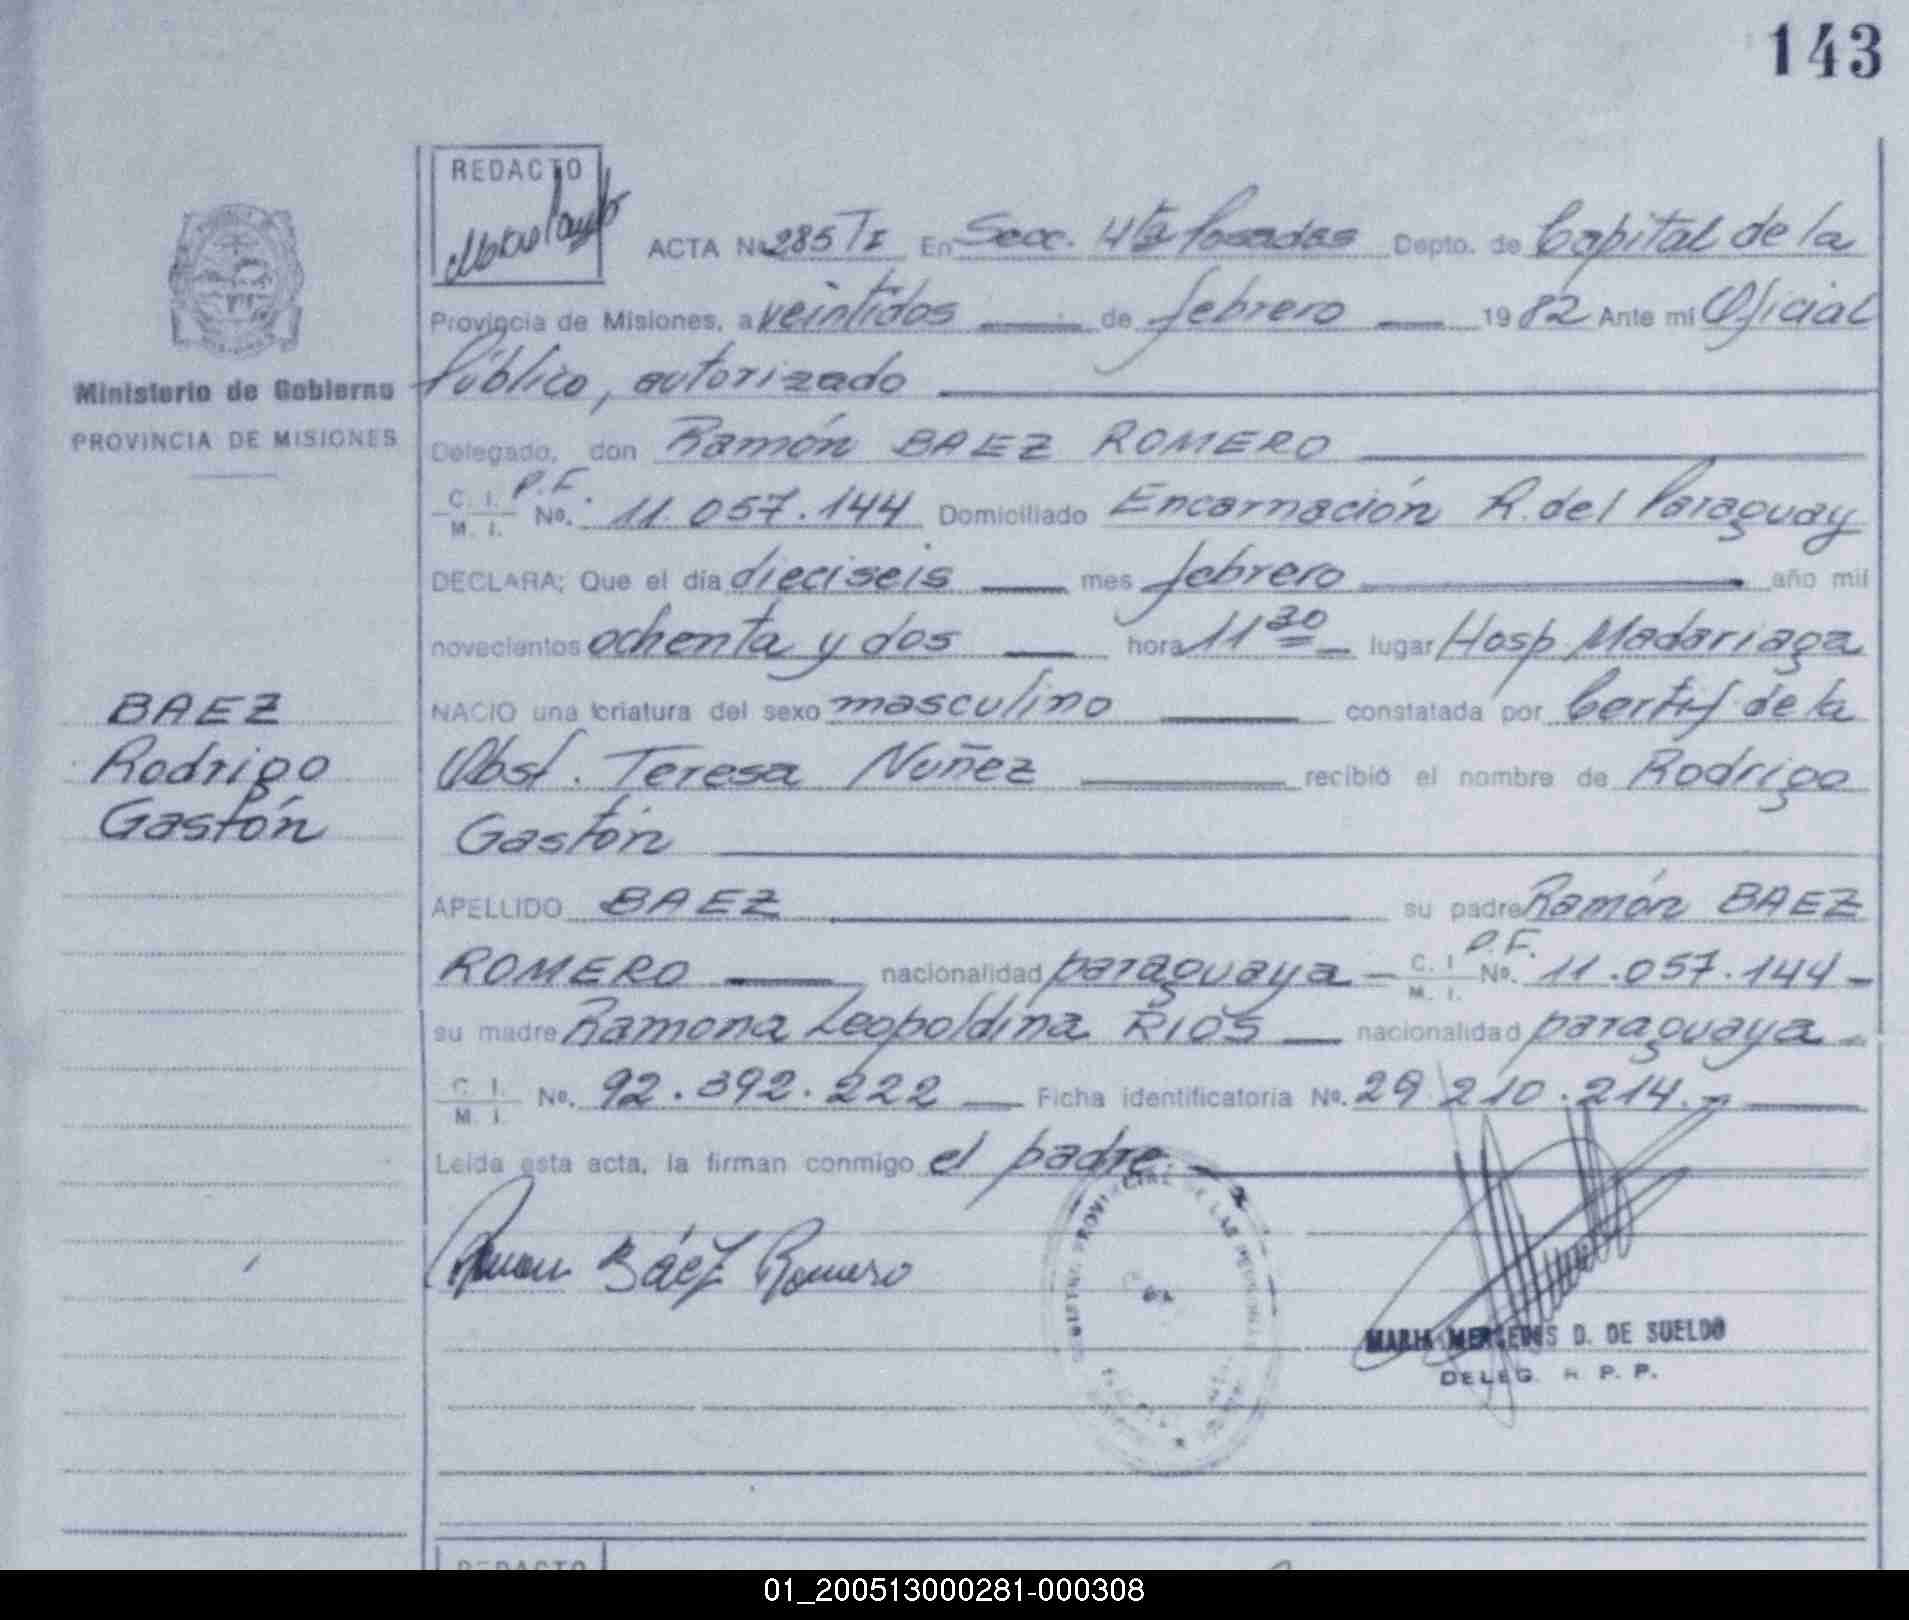 143
REDACTO
ACTA Nº 285 TI En Secc. 4ta Posadas Depto. de Capital de la
Provincia de Misiones, a veintidos de febrero 1982 Ante mi Oficial
Ministerio de Gobierno
Público, autorizado
PROVINCIA DE MISIONES
Delegado, don Ramón BAEZ ROMERO
C. I. P.F.
M. I. No. 11.057.144 Domiciliado Encarnación R. del Paraguay
DECLARA; Que el día dieciseis mes febrero año mil
novecientos ochenta y dos hora 11 30 lugar Hosp Madariaga
BAEZ
NACIO una criatura del sexo masculino constatada por Certif de la
Rodrigo
Obst. Teresa Nuñez recibió el nombre de Rodrigo
Gastón
Gastón
APELLIDO BAEZ su padre Ramón BAEZ
ROMERO nacionalidad paraguaya C. I. M. I. P.F. No. 11.057.144
su madre Ramona Leopoldina RIOS nacionalidad paraguaya
C. I. M. I. No. 92.392.222 Ficha identificatoria No. 29.210.214.
Leida esta acta, la firman conmigo el padre.
Ramon Báez Romero
MARIA MERCEDES D. DE SUELDO
DELEG. R. P. P.
REDACTO
01_200513000281-000308